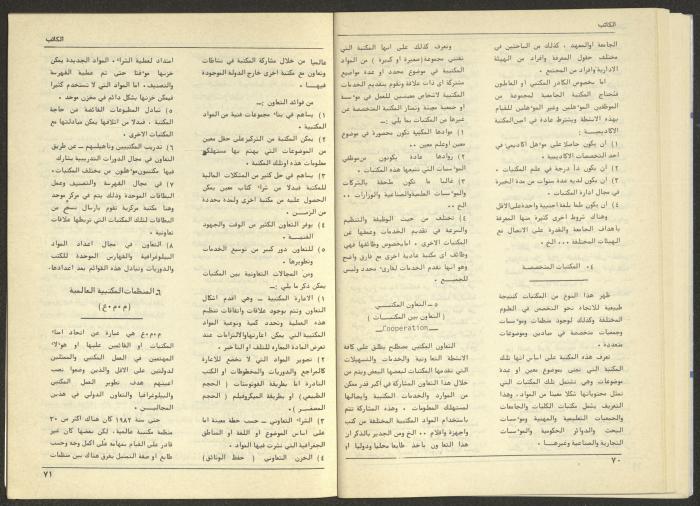 الكاتب
الجامعة والمعهد ، كذلك من الباحثين في
مختلف حقول المعرفة وافراد من الهيئة
الادارية وافراد من المجتمع .
اما بخصوص الكادر المكتبي او العاملون
فتحتاج المكتبة الجامعية لمجموعة من
الموظفين المو٬هلين وغير المو٬هلين للقيام
بهذه الانشطة ويشترط عادة في امين المكتبة
الاكاديمية :
١) ان يكون حاصلا على مو٬هل اكاديمي في
احد التخصصات الاكاديمية .
٢) ان يكون ذا درجة في علم المكتبات .
٣) ان يكون لديه عدة سنوات من مدة الخبرة
في مجال ادارة المكتبات .
٤) ان يكون ملما بلغة اجنبية واحدة على الاقل
وهناك شروط اخرى كثيرة منها المعرفة
باهداف الجامعة والقدرة على الاتصال مع
الهيئات المختلفة ... الخ .
٤. المكتبات المتخصصة
ظهر هذا النوع من المكتبات كنتيجة
طبيعية للاتجاه نحو التخصص في العلوم
المختلفة وكذلك لوجود منظمات ومو٬سسات
وجمعيات متخصصة في ميادين وموضوعات
متعددة .
تعرف هذه المكتبة على اساس انها تلك
المكتبة التي تعنى بموضوع معين او عدة
موضوعات وهي تشمل تلك المكتبات التي
تمثل محتوياتها شكلا معينا من المواد ، وهذا
التعريف يشمل مكتبات الكليات والجامعات
والجمعيات التعليمية والمهنية ومو٬سسات
البحث والدوائر الحكومية والمو٬سسات
التجارية والصناعية وغيرهـا .
وتعرف كذلك على انها المكتبة التي
تقتني مجموعة (صغيرة او كبيرة ) من المواد
المكتبية في موضوع محدد او عدة مواضيع
مشتركة اي ذات علاقة وتقوم بتقديم الخدمات
المكتبية لاشخاص معينين للعمل في مو٬سسة
او جمعية معينة وتمتاز المكتبة المتخصصة عن
غيرها من المكتبات بما يلي :ــ
١) موادها المكتبية تكون محصورة في موضوع
معين اوعلم معين ..
٢) روادها عادة يكونون من موظفي
المو٬سسات التي تتبعها هذه المكتبات .
٣) غالبا ما تكون ملحقة بالشركات
والمو٬سسات العلمية والصناعية والوزارات ..
الخ ..
٤) تختلف من حيث الوظيفة والتنظيم
والسرعة في تقديم الخدمات وعمقها عن
المكتبات الاخرى . اما بخصوص وظائفها فهي
وظائف اي مكتبة عادية اخرى مع فارق واضح
وهو انها تقدم الخدمات لقارى٬ محدد وليس
للجميـع .
٥ ــ التعاون المكتبـي
( التعاون بين المكتبـات )
Cooperation
التعاون المكتبي مصطلح يطلق على كافة
الانشطة التعاونية والخدمات والتسهيلات
التي تقدمها المكتبات لبعضها البعض ويتم من
خلال هذا التعاون المشاركة في اكبر قدر ممكن
من الموارد والخدمات المكتبية وايصالها
لمستهلك المعلومات . وهذه المشاركة تتم
باستخدام المواد المكتبية المختلفة من كتب
واجهزة وافلام .. الخ ومن الجدير بالذكر ان
هذا التعاون ياخذ طابعا محليا ودوليا او
٧٠
الكاتب
عالميا من خلال مشاركة المكتبة في نشاطات
وتعاون مع مكتبة اخرى خارج الدولة الموجودة
فيهـا .
من فوائد التعاون :ــ
١) يساهم في بنا٬ مجموعات فنية من المواد
المكتبية .
٢) يمكن المكتبة من التركيز على حقل معين
من الموضوعات التي يهتم بها مستهلكو
معلومات هذه او تلك المكتبة .
٣) يساهم في حل كثير من المشكلات المالية
للمكتبة فبدلا من شرا٬ كتاب معين يمكن
الحصول عليه من مكتبة اخرى ولمدة محددة
من الزمـن .
٤) يوفر التعاون الكثير من الوقت والجهود
الفنيـة .
٥) للتعاون دور كبير من توسيع الخدمات
وتطويرها .
ومن المجالات التعاونية بين المكتبات
يمكن ذكر ما يلي :ــ
١) الاعارة المكتبية ــ وهي اقدم اشكال
التعاون وتتم بوجود علاقات واتفاقات تنظم
هذه العملية وتحدد كمية ونوعية المواد
المكتبية التي يمكن اعارتها والالتزامات عند
تعرض المادة المعارة للتلف او التاخير .
٢) تصوير المواد التي لا تخضع للاعارة
كالمراجع والدوريات والمخطوطات او الكتب
النادرة اما بطريقة الفوتوستات ( الحجم
الطبيعي ) او بطريقة الميكروفيلم ( الحجم
المصغـر ) .
٣) الشرا٬ التعاوني ــ حسب خطة معينة اما
على اساس الموضوع او اللغة او المناطق
الجغرافية التي نشرت فيها المواد .
٤) الخزن التعاوني ( حفظ الوثائق)
امتداد لعملية الشرا٬ . المواد الجديدة يمكن
خزنها مو٬قتا حتى تم عطية الفهرسة
والتصنيف ، اما المواد التي لا تستخدم كثيرا
فيمكن خزنها بشكل دائم في مخزن موحد .
٥) تبادل المطبوعات الفائضة عن حاجة
المكتبة . فبدلا من اتلافها يمكن مبادلتها مع
المكتبات الاخرى .
٦) تدريب المكتبيين وتاهيلهـم ــ عن طريق
التعاون في مجال الدورات التدريبية يشارك
فيها مكتبيون مو٬هلون من مختلف المكتبات .
٧) في مجال الفهرسة والتصنيف وعمل
البطاقات الموحدة وذلك يتم في مركز موحد
وهنا مكتبة مركزية تقوم بارسال نسخ من
البطاقات لتلك المكتبات التي تربطها علاقات
تعاونية .
٨) التعاون في مجال اعداد المواد
البيلوغرافية والفهارس الموحدة للكتب
والدوريات وتبادل هذه القوائم بعد اعدادها .
٦. المنظمات المكتبية العالمية
( م . م . ع )
م.م.ع هي عبارة عن اتحاد امنا٬
المكتبات او القائمين عليها او هو٬لا٬
المهتمين في العمل المكتبي والممثلين
لدولتين على الاقل والذين وضعوا نصب
اعينهم هدف تطوير العمل المكتبي
والبيلوغرافيا والتعاون الدولي في هذين
المجاليـن .
حتى سنة ١٩٨٢ كان هناك اكثر من ٣٠
منظمة مكتبية عالمية ، لكن بعضها كان غير
قادر على القيام بمهامه على اكمل وجه وحسب
طابع او صفة التمثيل يفرق هناك بين منظمات
٧١